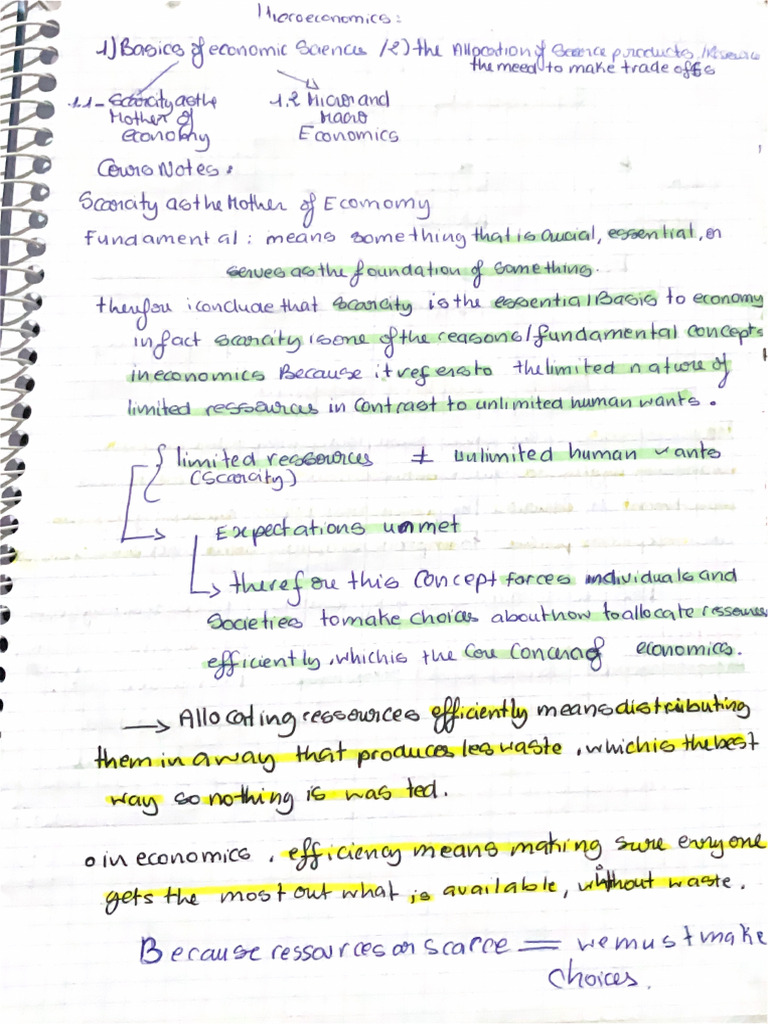 Microeconomics:
1) Basics of economic Sciences / 2) the Allocation of Scarce products /
the need to make trade offs
1.1 - Scarcity as the 1.2 Micro and
Mother of Macro
economy Economics
Cours Notes:
Scarcity as the Mother of Economy
Fundamental: means something that is crucial, essential, or
serves as the foundation of something.
therefore i conclude that scarcity is the essential Basis to economy
in fact scarcity is one of the reasons / fundamental concepts
in economics Because it refers to the limited nature of
limited ressources in contrast to unlimited human wants.
limited ressources ≠ unlimited human wants
(Scarcity)
Expectations unmet
therefore this concept forces individuals and
Societies to make choices about how to allocate ressources
efficiently, which is the core concern of economics.
→ Allocating ressources efficiently means distributing
them in a way that produces less waste, which is the best
way so nothing is wasted.
o in economics, efficiency means making sure everyone
gets the most out what is available, without waste.
Because ressources are scarce = we must make
choices.